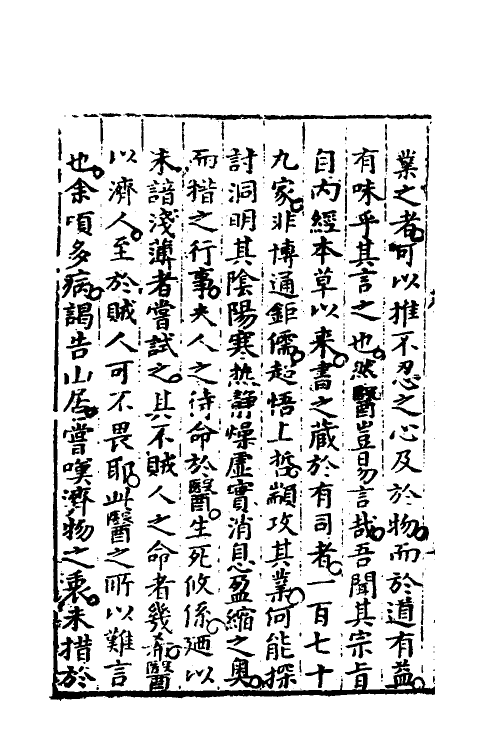 業之者可以推不忍之心及於物而於道有益
有味乎其言之也然醫豈易言哉吾聞其宗旨
自內經本草以来書之蔵於有司者一百七十
九家非博通鉅儒超悟上哲顓攻其業何能探
討洞明其陰陽寒热静燥虛實消息盈縮之奥
而措之行事夫人之待命於醫生死攸係廼以
未諳淺薄者嘗試之其不賊人之命者幾希醫
以濟人至於賊人可不畏耶此醫之所以難言
也余項多病謁告山居嘗嘆濟物之衷未措於